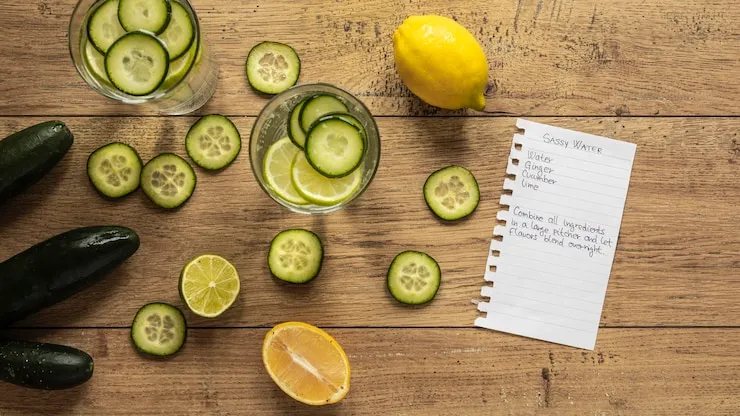 SASSY WATER
Water
Ginger
Cucumber
Lime
Combine all ingredients
in a large pitcher and let
flavors blend overnight.